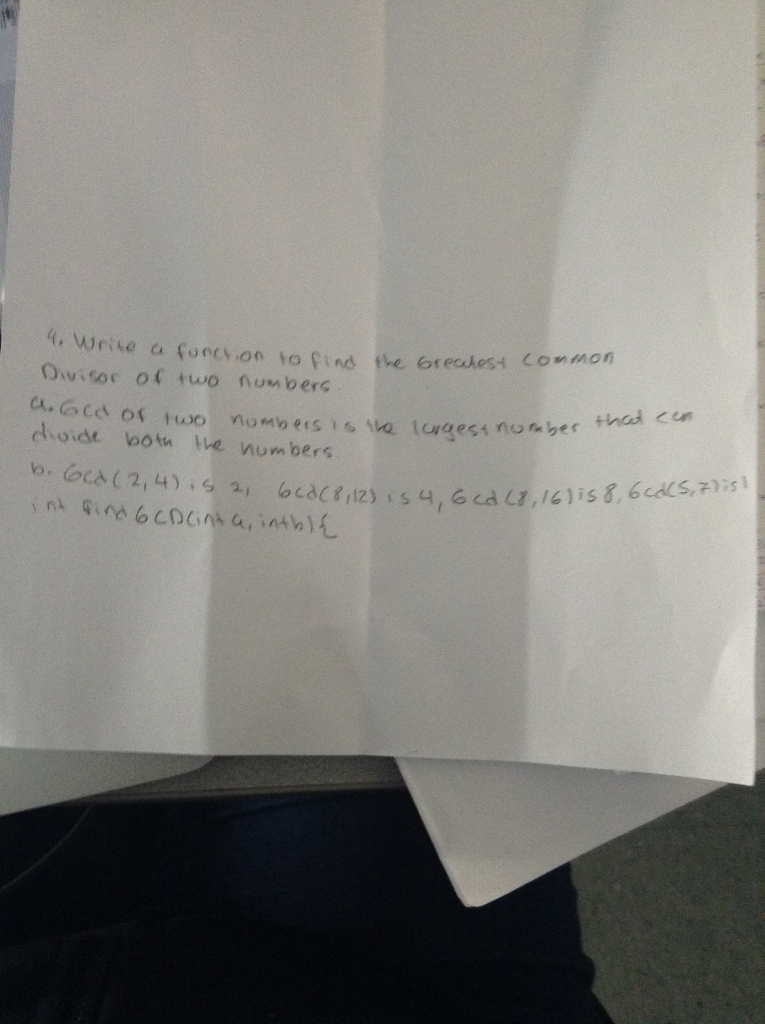 4. Write a function to find the Greatest Common
Divisor of two numbers.
a. Gcd of two numbers is the largest number that can
divide both the numbers.
b. Gcd(2,4) is 2, Gcd(8,12) is 4, Gcd(8,16) is 8, Gcd(5,7) is 1
int find GCD(int a, int b) {